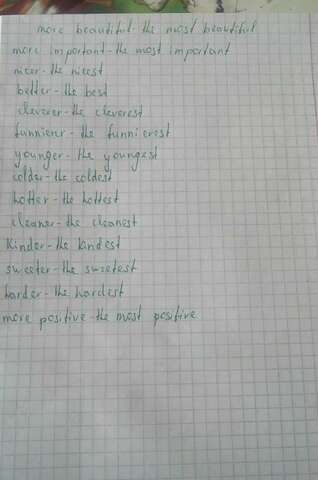 more beautiful - the most beautiful
more important - the most important
nicer - the nicest
better - the best
cleverer - the cleverest
funnierer - the funnierest
younger - the youngest
colder - the coldest
hotter - the hottest
cleaner - the cleanest
Kinder - the kindest
sweeter - the sweetest
harder - the hardest
more positive - the most positive